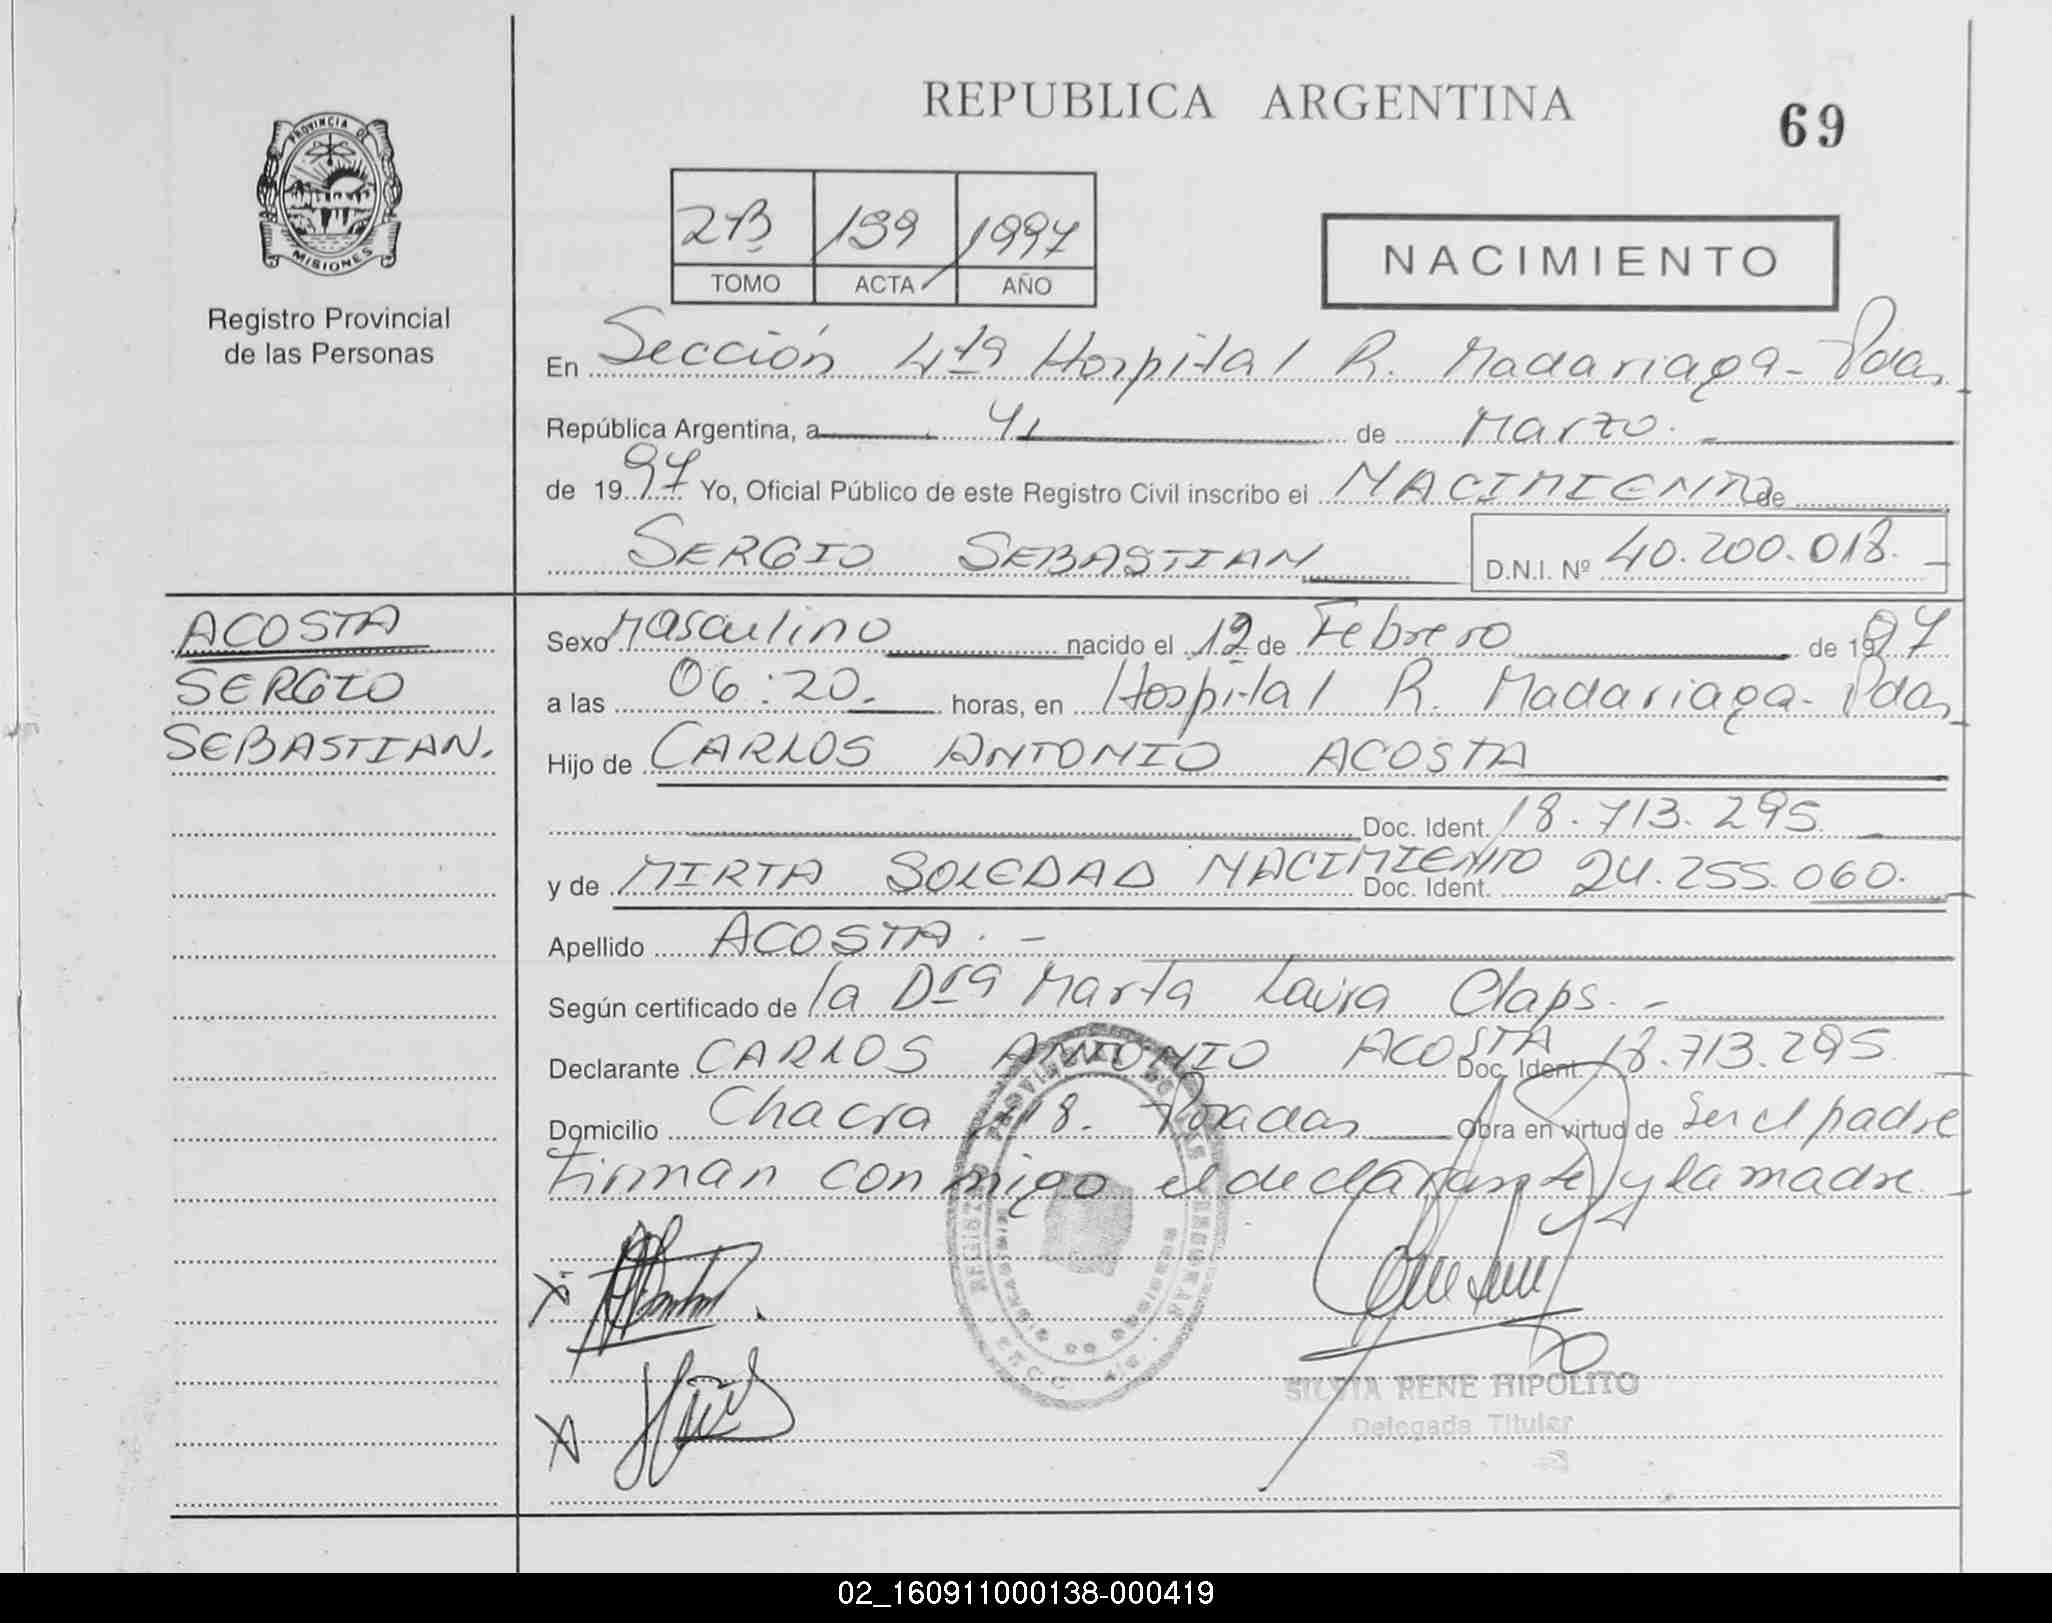 REPUBLICA ARGENTINA
69
PROVINCIA DE
MISIONES
Registro Provincial
de las Personas
2B 139 1997
TOMO ACTA AÑO
NACIMIENTO
En Sección 4ta Hospital R. Madariaga - Pdas
República Argentina, a 4 de Marzo. -
de 1997 Yo, Oficial Público de este Registro Civil inscribo el NACIMIENTO de
SERGIO SEBASTIAN D.N.I. Nº 40.200.018. -
ACOSTA
SERGIO
SEBASTIAN.
Sexo Masculino nacido el 12 de Febrero de 1997
a las 06:20. horas, en Hospital R. Madariaga - Pdas
Hijo de CARLOS ANTONIO ACOSTA
Doc. Ident. 18.713.295.
y de MIRTA SOLEDAD NACIMIENTO Doc. Ident. 24.255.060.
Apellido ACOSTA. -
Según certificado de la Dra Marta Laura Claps. -
Declarante CARLOS ANTONIO ACOSTA Doc. Ident. 18.713.295.
Domicilio Chacra 118. Posadas Obra en virtud de ser el padre
Firman conmigo el declarante y la madre.
SILVIA RENE HIPOLITO
Delegada Titular
02_160911000138-000419